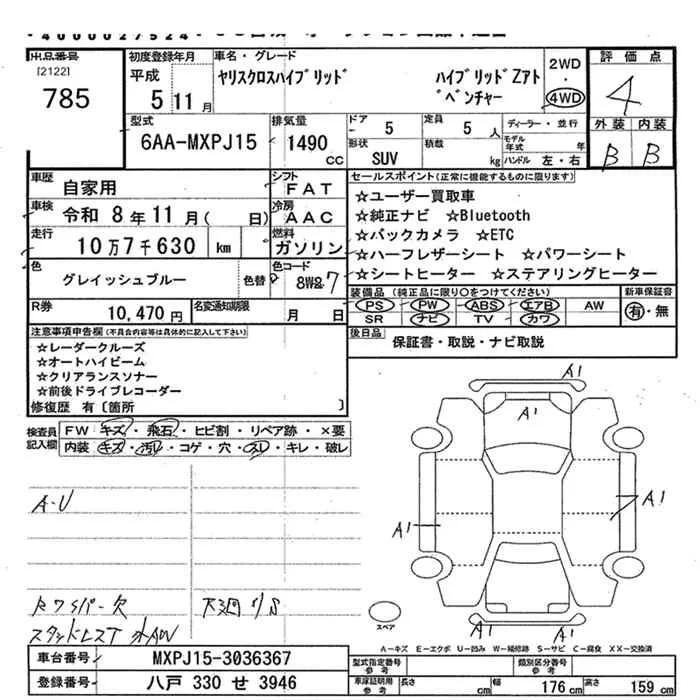 出品番号
[2122]
785
初度登録年月
平成
5 11 月
車名・グレード
ヤリスクロスハイブリッド ハイブリッドZアト
ベンチャー
2WD
・
4WD
評価点
4
外装 内装
B B
型式
6AA-MXPJ15
排気量
1490
CC
ドア
5
形状
SUV
定員
5 人
積載
kg
ディーラー・並行
モデル年式 年
ハンドル 左・右
車歴
自家用
シフト
FAT
車検
令和 8 年 11 月 ( 日)
冷房
AAC
走行
10 万 7 千 630 km
燃料
ガソリン
色
グレイッシュブルー
色替
色コード
8W&7
R券
10,470 円
名変通知期限
月 日
セールスポイント(正常に機能するものに限ります)
☆ユーザー買取車
☆純正ナビ ☆Bluetooth
☆バックカメラ ☆ETC
☆ハーフレザーシート ☆パワーシート
☆シートヒーター ☆ステアリングヒーター
装備品 (純正品に限り○をつけてください)
PS PW ABS エアB AW
SR ナビ TV カワ
新車保証書
有・無
後日品
保証書・取説・ナビ取説
注意事項申告欄(不具合内容等は具体的に記入して下さい)
☆レーダークルーズ
☆オートハイビーム
☆クリアランスソナー
☆前後ドライブレコーダー
修復歴 有〔箇所 〕
検査員記入欄
FW キズ・飛石・ヒビ割・リペア跡・×要
内装 キズ・汚れ・コゲ・穴・スレ・キレ・破し
A-U
A1
A1
A1
A1
A1
A1
スペア
スタッドレスT
A-キズ E-エクボ U-凹み W-補修跡 S-サビ C-腐食 XX-交換済
車台番号
MXPJ15-3036367
登録番号
八戸 330 せ 3946
型式指定番号 参考
類別区分番号 参考
車庫証明用 参考
長さ cm
幅 176 cm
高さ 159 cm